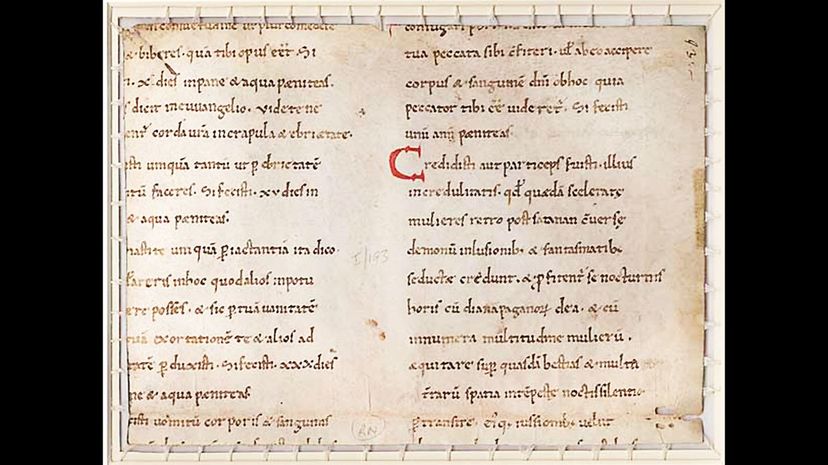 & biberes, qua tibi opus eēt. Si
x dies inpane & aqua pæniteas.
dicit ineuuangelio. Videte ne
corda urā incrapula & ebrietate.
umquā tantū ut p ebrietatē
faceres. Si fecisti. xv dies in
& aqua pæniteas.
umquā p iactantiā ita dico
inhoc quod alios inpotu
posses. & sic p tuā uanitatē
exortationē te & alios ad
p duxisti. Si fecisti. xxx dies
& aqua pæniteas
uomitū corporis & sanguinis
tua peccata sibi c̄fiteri. uł abeo accipere
corpus & sanguinē dñi obhoc quia
peccator tibi eē uideret̄. Si fecisti
unū annū pæniteas.
Credidisti aut particeps fuisti illius
incredulitatis. qđ quædā sceleratę
mulieres retro post satanan c̄uersę
demonū inlusionib; & fantasmatib;
seductæ credunt. & pfitent̄ se nocturnis
horis cū diana paganorū dea. & cū
innumera multitudine mulierū.
æquitare sup quasdā bestias & multa
t̄rarū spatia intēpestę noctis silentio
ptransire. eiq; iussionib; uelut
I/193
RN